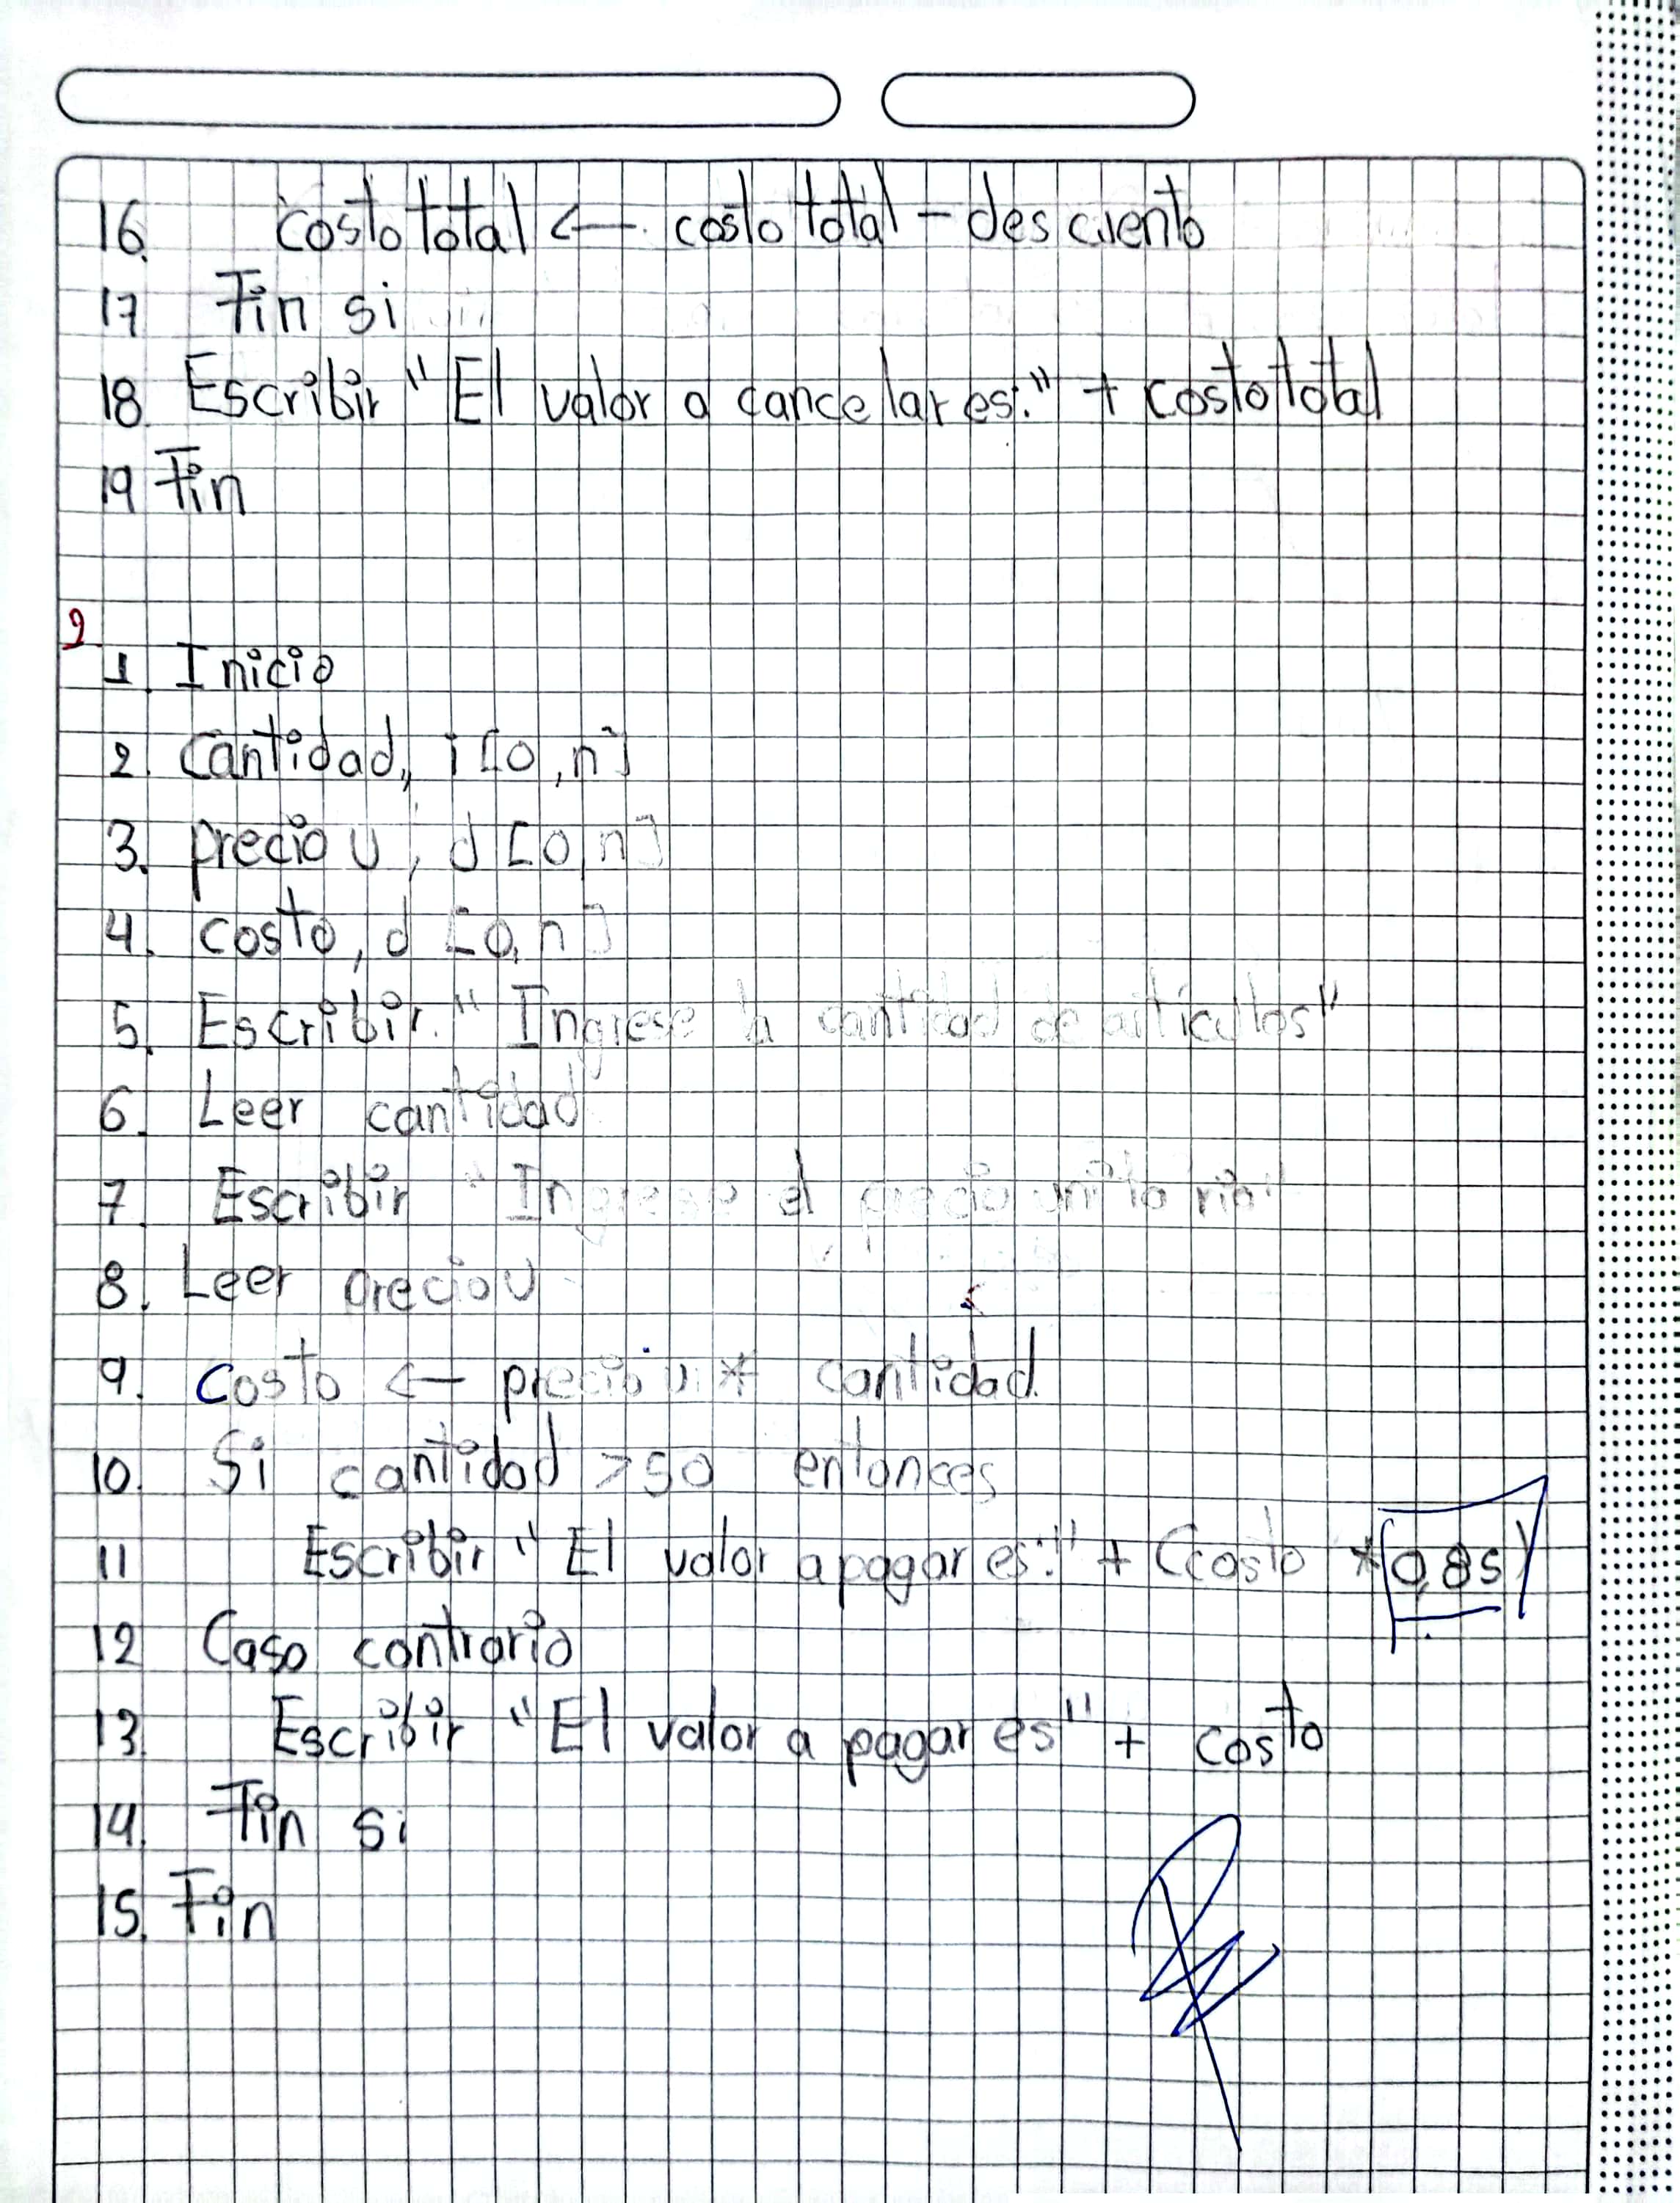 16. costototal <— costototal - descuento
17 Fin si
18. Escribir "El valor a cancelar es:" + costototal
19 Fin
2
1. Inicio
2. cantidad, i [0,n]
3. precioU, d [0,n]
4. costo, d [0,n]
5. Escribir "Ingrese la cantidad de artículos"
6. Leer cantidad
7. Escribir "Ingrese el precio unitario"
8. Leer precioU
9. costo <— precioU * cantidad
10. Si cantidad >50 entonces
11 Escribir "El valor a pagar es:" + (costo * 0,85)
12 Caso contrario
13. Escribir "El valor a pagar es" + costo
14. Fin si
15. Fin